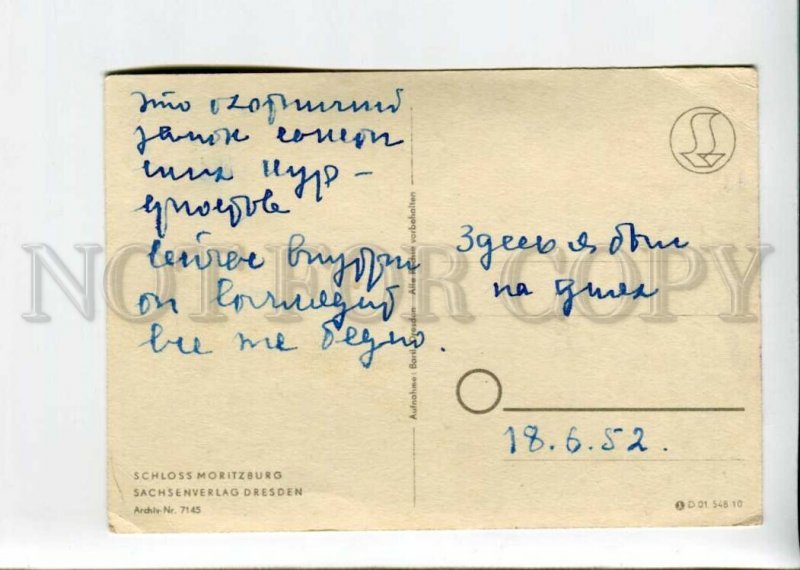 это охотничий
замок саксон
ских кур-
фюрстов
сейчас внутри
он выглядит
все же бедно.
Здесь я был
на днях
18.6.52.
Aufnahme: Borit, Dresden - Alle Rechte vorbehalten
SCHLOSS MORITZBURG
SACHSENVERLAG DRESDEN
Archiv-Nr. 7145
D 01 548 10
NOT FOR COPY